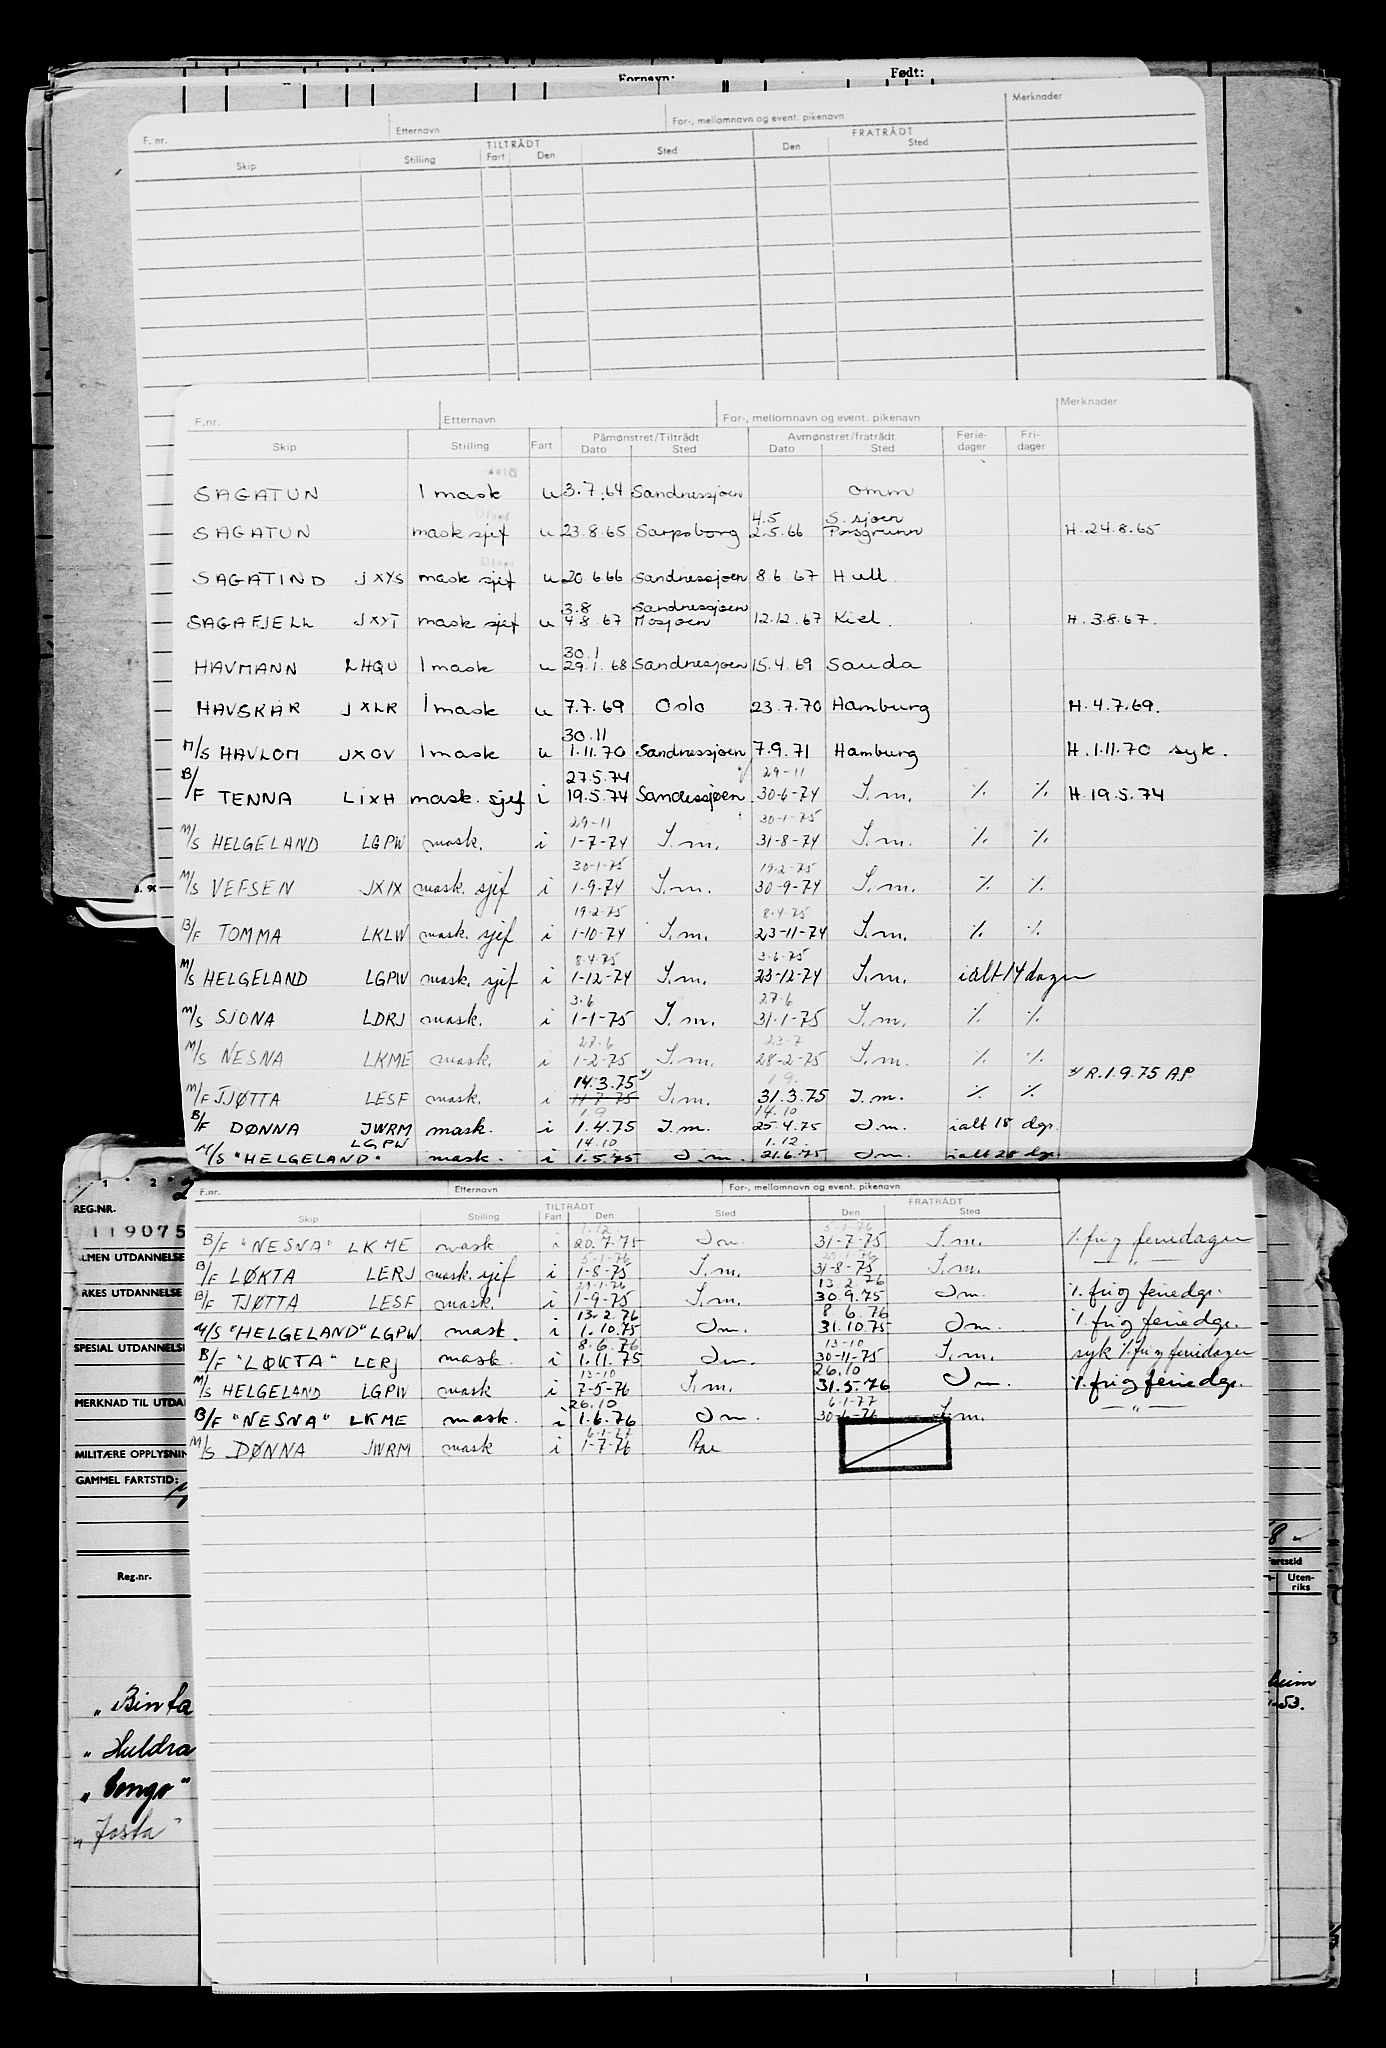 Fornavn: Født:
F. nr. Etternavn For-, mellomnavn og event. pikenavn Merknader
TILTRÅDT FRATRÅDT
Skip Stilling Fart Den Sted Den Sted
F.nr. Etternavn For-, mellomnavn og event. pikenavn Merknader
Påmønstret/Tiltrådt Avmønstret/fratrådt Ferie- Fri-
Skip Stilling Fart Dato Sted Dato Sted dager dager
SAGATUN 1 mask u 3.7.64 Sandnessjoen omm
4.5 S. sjoen
SAGATUN mask sjef u 23.8.65 Sarpsborg 2.5.66 Porsgrunn H. 24.8.65
SAGATIND JXYS mask sjef u 20.6.66 Sandnessjoen 8.6.67 Hull
3.8 Sandnessjoen
SAGAFJELL JXYT mask sjef u 4.8.67 Mosjoen 12.12.67 Kiel. H. 3.8.67.
30.1
HAVMANN LHQU 1 mask u 29.1.68 Sandnesjoen 15.4.69 Sauda
HAVSKÅR JXLR 1 mask u 7.7.69 Oslo 23.7.70 Hamburg H. 4.7.69.
30.11
M/S HAVLOM JXOV 1 mask u 1.11.70 Sandnessjoen 7.9.71 Hamburg H. 1.11.70 syk.
27.5.74 29-11
B/F TENNA LIXH mask. sjef i 19.5.74 Sandessjøen 30-6-74 S.m. % % H. 19.5.74
29-11 30-1-75
M/S HELGELAND LGPW mask. i 1-7-74 S.m. 31-8-74 S.m. % %
30-1-75 19-2-75
M/S VEFSEN JXIX mask. sjef i 1-9-74 S.m. 30-9-74 S.m. % %
19-2-75 8.4.75
B/F TOMMA LKLW mask. sjef i 1-10-74 S.m. 23-11-74 S.m. % %
8.4.75 3.6.75
M/S HELGELAND LGPW mask. sjef i 1-12-74 S.m. 23-12-74 S.m. ialt 14 dager
3.6 27.6
M/S SJONA LDRJ mask. i 1-1-75 S.m. 31-1-75 S.m. % %
27.6 23-7
M/S NESNA LKME mask. i 1-2-75 S.m. 28-2-75 S.m. % %
14.3.75 x) 1.9. x/ R.1.9.75 A.P.
M/F TJØTTA LESF mask. i S.m. 31.3.75 S.m. % %
1.9 14.10
B/F DØNNA JWRM mask. i 1.4.75 S.m. 25.4.75 S.m. ialt 18 dgr.
LGPW 14.10 1.12.
M/S "HELGELAND" mask. i 1.5.75 S.m. 21.6.75 S.m. ialt 28 dgr.
F.nr. Etternavn For-, mellomnavn og event. pikenavn
TILTRÅDT FRATRÅDT
Skip Stilling Fart Den Sted Den Sted
1.12. 5-1-76
B/F "NESNA" LKME mask. i 20.7.75 S.m. 31-7-75 S.m. % fri og feriedager
5-1-76
B/F LØKTA LERJ mask. sjef i 1-8-75 S.m. 31-8-75 S.m. — " —
13.2.76
B/F TJØTTA LESF mask. i 1-9-75 S.m. 30.9.75 S.m. % fri og feriedgr.
13.2.76 8.6.76
M/S "HELGELAND" LGPW mask. i 1.10.75 S.m. 31.10.75 S.m. % fri og feriedgr.
8.6.76 13-10
B/F "LØKTA" LERJ mask. i 1.11.75 S.m. 30-11-75 S.m. syk % fri og feriedager
13-10 26.10
M/S HELGELAND LGPW mask i 7-5-76 S.m. 31.5.76 S.m. % fri og feriedgr.
26.10 6-1-77
B/F "NESNA" LKME mask. i 1.6.76 S.m. 30-6-76 S.m. — " —
6-1-77
M/S DØNNA JWRM mask i 1-7-76
REG.NR.
119075
LMEN UTDANNELSE
RKES UTDANNELSE
SPESIAL UTDANNELSE
MERKNAD TIL UTDA
MILITÆRE OPPLYSNIN
GAMMEL FARTSTID:
Reg.nr. Fartstid
Uten-
riks
"Binta
"Huldra
"Congo"
"Josta"